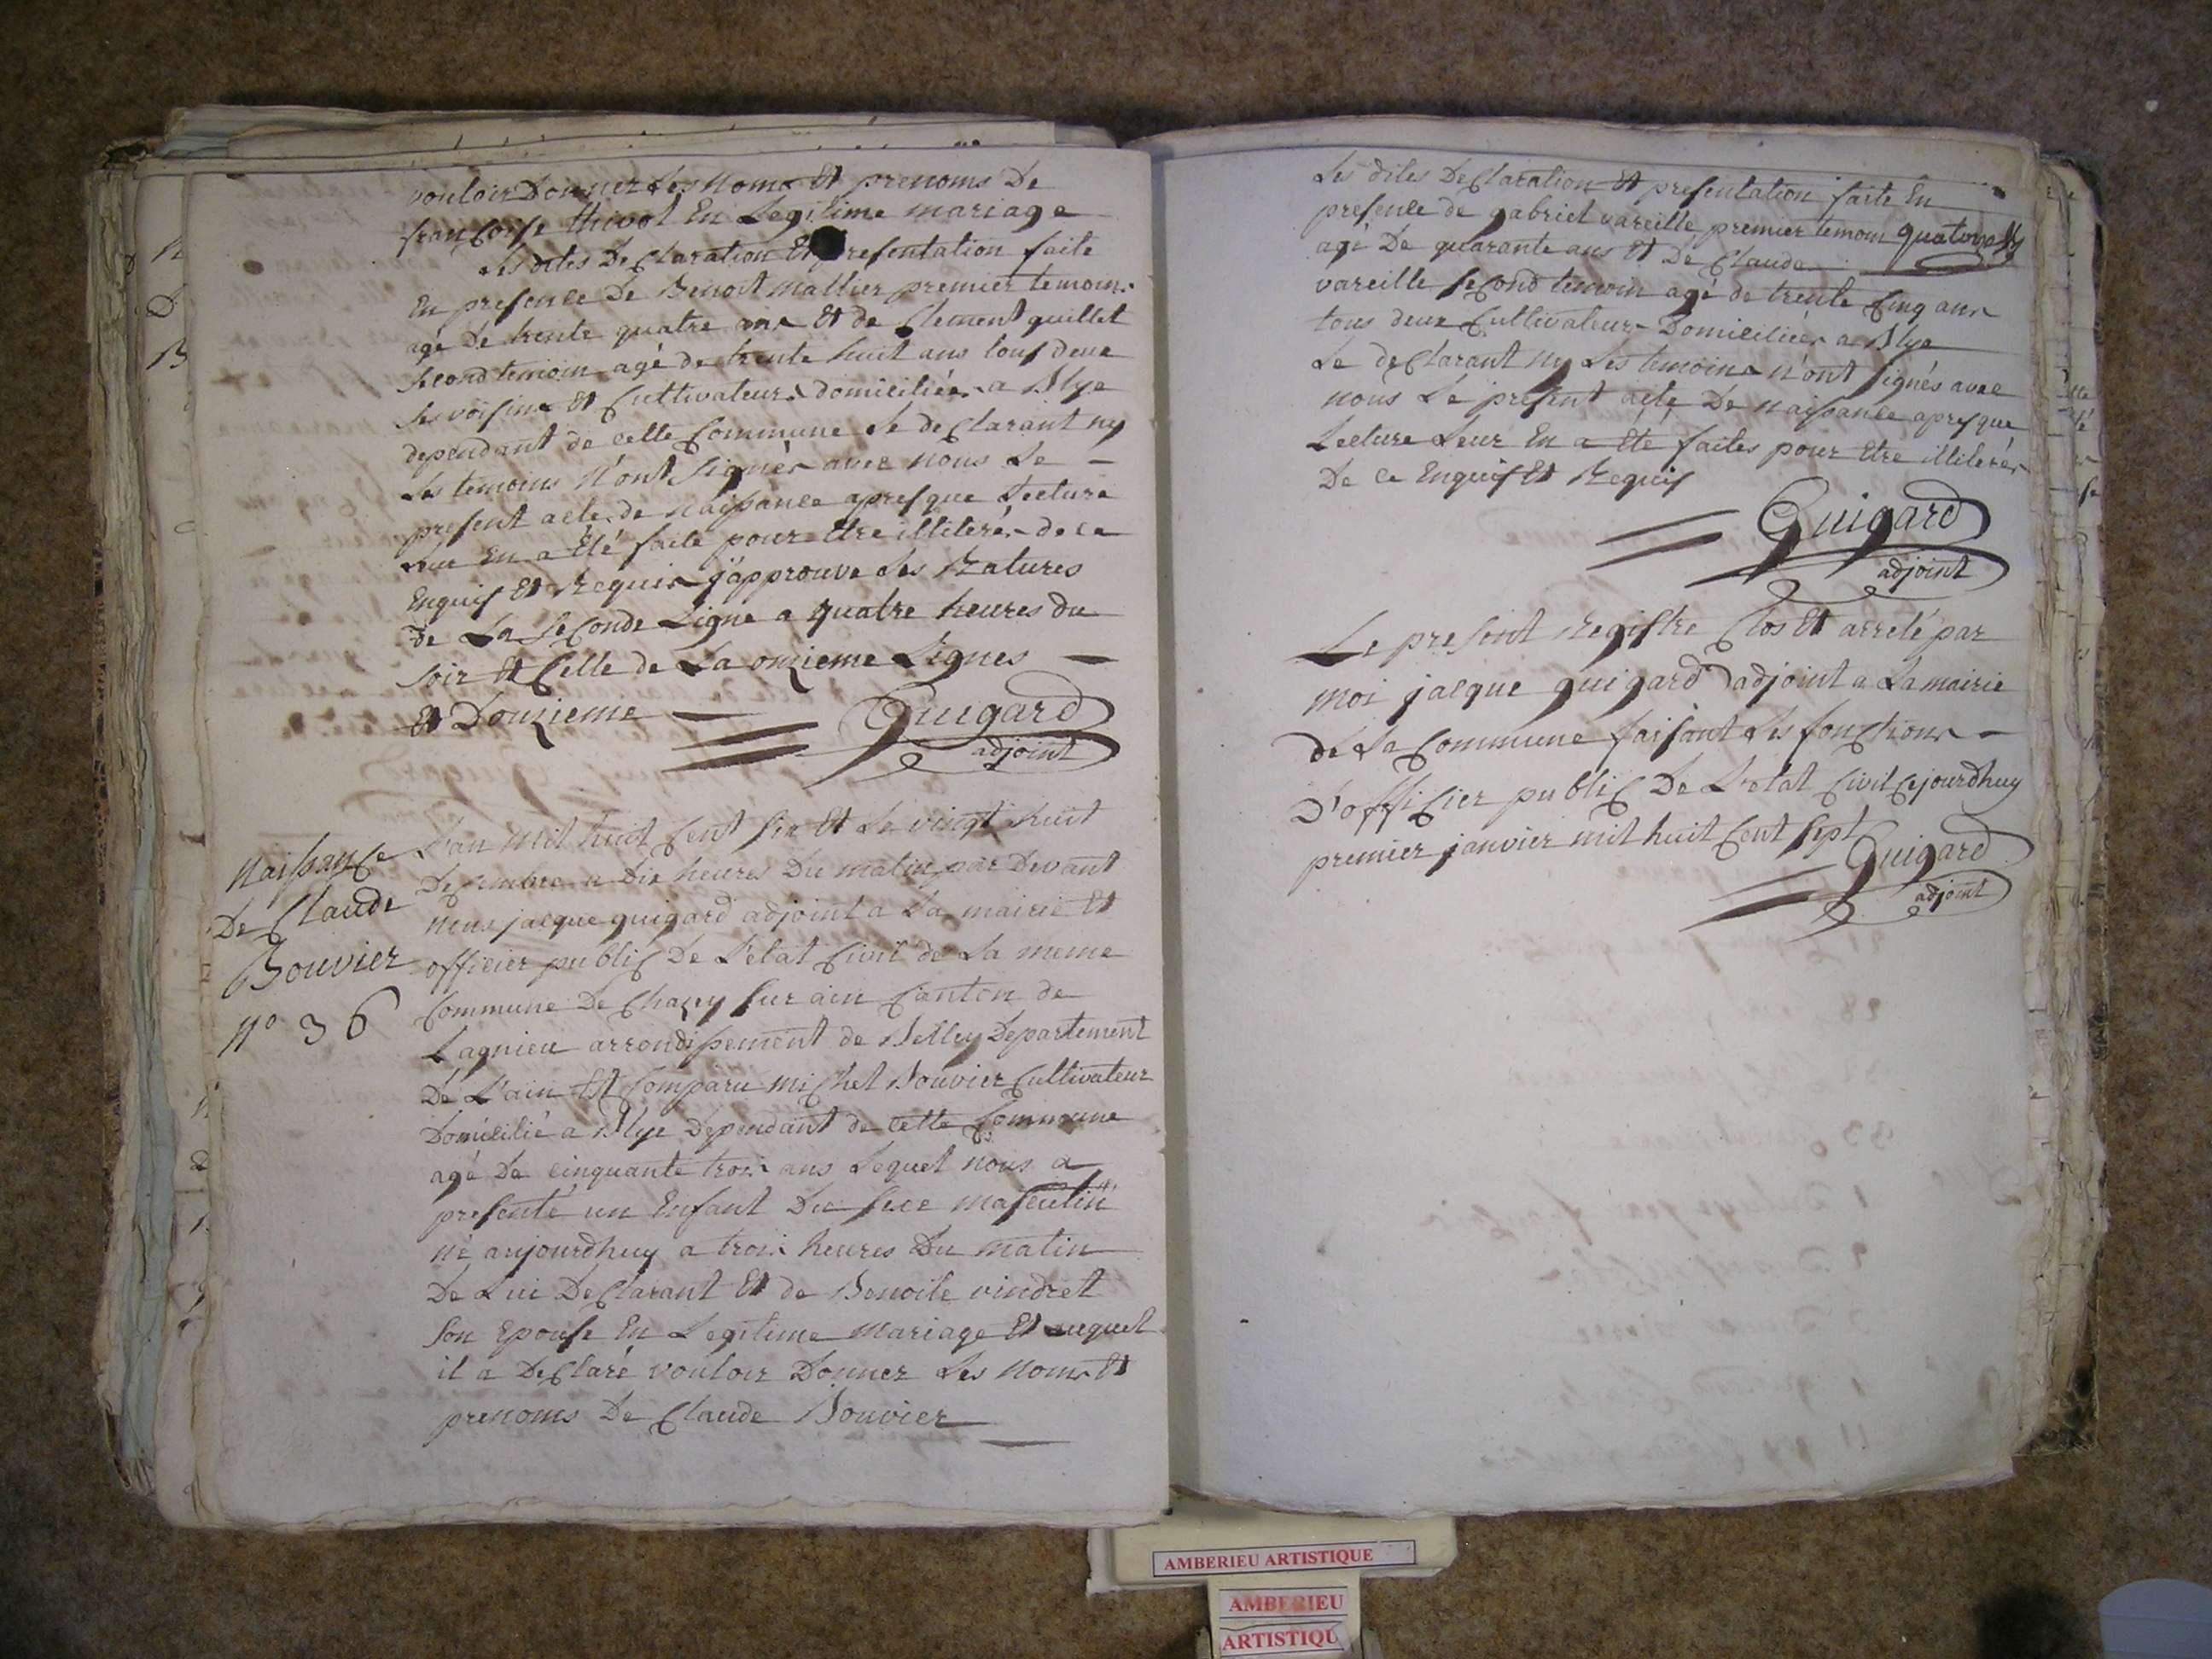 vouloir Donner Les Noms Et prenoms De
françoise thivot En Legitime mariage
Les dites Declaration Et presentation faite
En presence De Benoit mallier premier temoin
agé De trente quatre ans Et de Clement guillet
second temoin agé de trente huit ans tous deux
ses voisins Et Cultivateurs domiciliés a Blye
dependant de cette Commune Le declarant ny
Les temoins N'ont signés avec nous Le –
present acte de Naissance apres que Lecture
Leur En a Eté faite pour Etre illiterés de ce
Enquis Et Requis j'approuve Les Ratures
de La seconde Ligne a quatre heures du
soir Et Celle de La onzieme Lignes —
Et Douzieme
Guigard
adjoint
Naissance
De Claude
Bouvier
N° 36
L'an Mil huit Cent six Et Le vingt huit
Decembre a Dix heures Du matin par Devant
Nous jacque guigard adjoint a La mairie Et
officier public De L'etat Civil de La meme
Commune De Chazey sur ain Canton de
Lagnieu arrondissement de Belley Departement
De L'ain Est Comparu Michel Bouvier Cultivateur
Domicilié a Blye Dependant de cette Commune
agé De cinquante trois ans Lequel nous a
presenté un Enfant Du sexe masculin
né aujourdhuy a trois heures Du matin
De Lui Declarant Et de Benoite vindret
son Epouse En Legitime mariage Et auquel
il a Declaré vouloir Donner Les Noms Et
prenoms De Claude Bouvier
Les dites Declaration Et presentation faite En
presence de gabriel vareille premier temoin quatorze
agé De quarante ans Et De Claude
vareille second temoin agé de trente Cinq ans
tous deux Cultivateurs Domiciliés a Blye
Le declarant ny Les temoins n'ont signés avec
nous Le present acte De Naissance apres que
Lecture Leur En a Eté faites pour Etre illiterés
De ce Enquis Et Requis
Guigard
adjoint
Le present Registre Clos Et arreté par
Moi jacque guigard adjoint a La mairie
de La Commune faisant Les fonctions –
D'officier public De L'etat Civil Cejourdhuy
premier janvier mil huit Cent sept
Guigard
adjoint
AMBERIEU ARTISTIQUE
AMBERIEU
ARTISTIQU